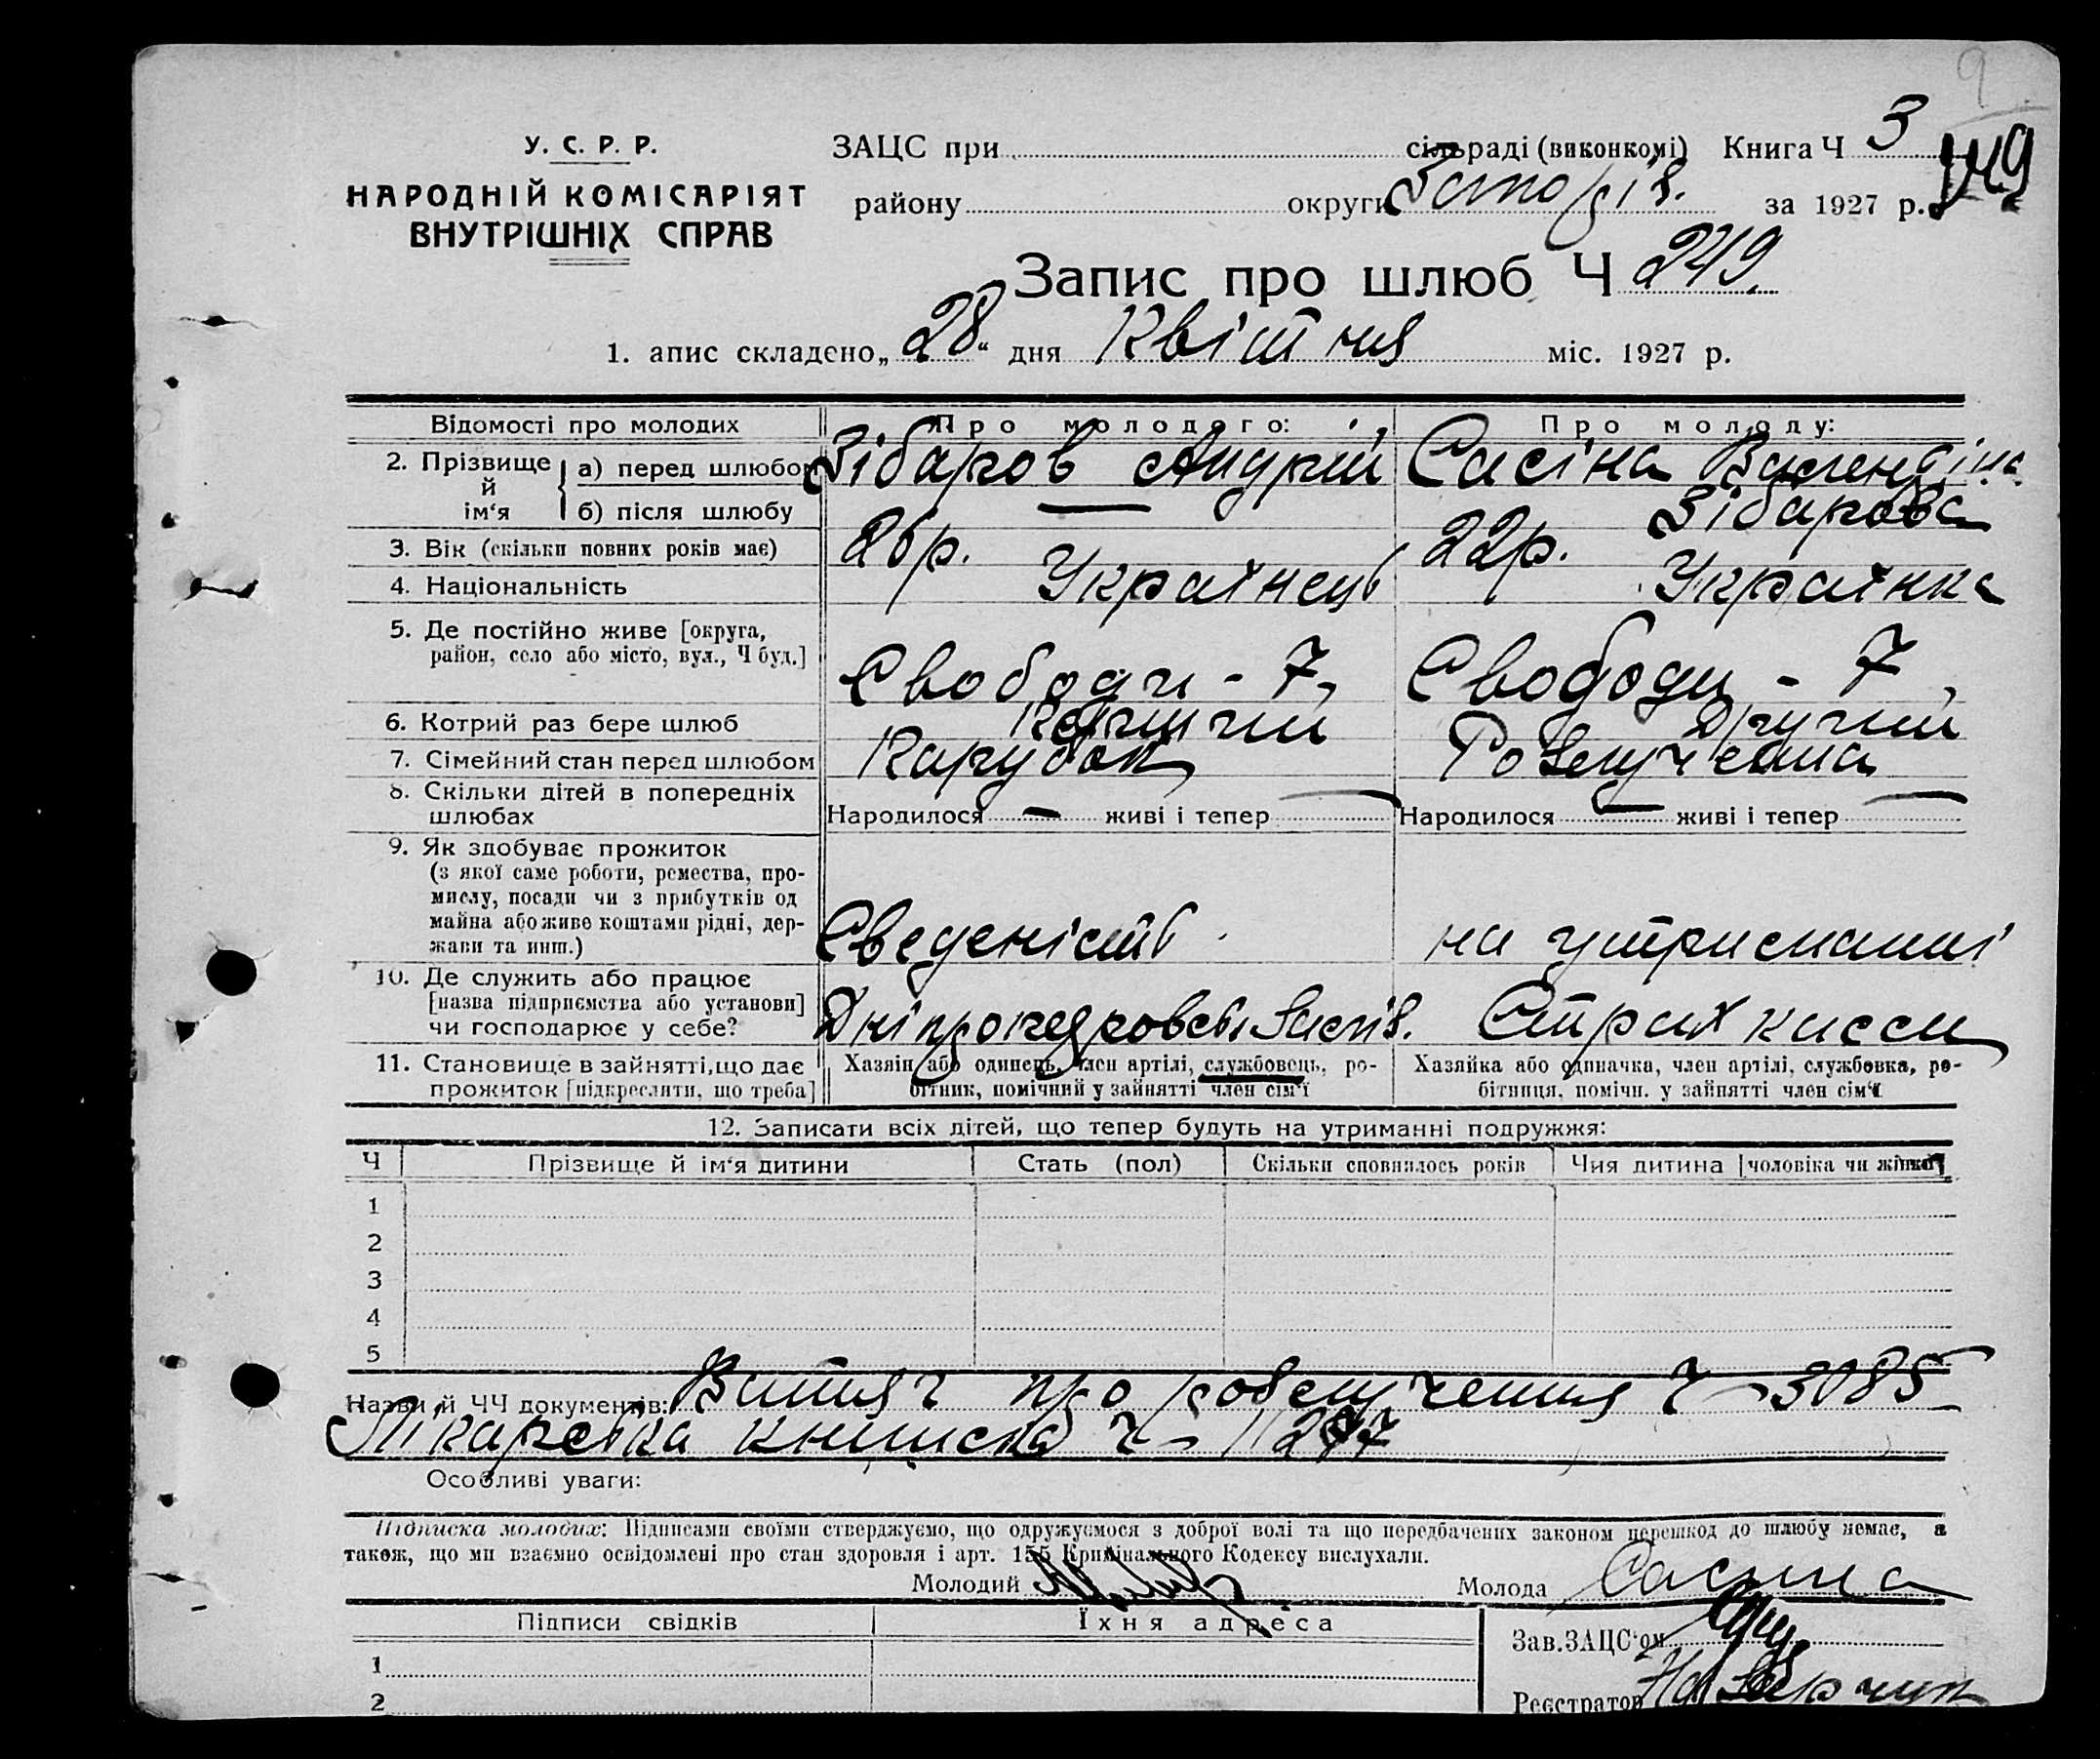 9
У. С. Р. Р.
НАРОДНІЙ КОМІСАРІЯТ
ВНУТРІШНІХ СПРАВ
ЗАЦС при сільраді (виконкомі) Книга Ч 3
району округи за 1927 р.
Запис про шлюб Ч 249.
1. апис складено „28“ дня Квітня міс. 1927 р.
Відомості про молодих Про молодого: Про молоду:
2. Прізвище й ім‘я а) перед шлюбом Зібаров Андрій Сасіна Валендіна
б) після шлюбу — Зібарова
3. Вік (скільки повних років має) 26р. 22р.
4. Національність Українець Українка
5. Де постійно живе [округа,
район, село або місто, вул., Ч буд.] Свободи - 7, Свободи - 7,
6. Котрий раз бере шлюб Перший Другий
7. Сімейний стан перед шлюбом Парубок Розлучена
8. Скільки дітей в попередніх
шлюбах Народилося — живі і тепер — Народилося — живі і тепер —
9. Як здобуває прожиток
(з якої саме роботи, ремества, про-
мислу, посади чи з прибутків од
майна або живе коштами рідні, дер-
жави та инш.) на утриманні
10. Де служить або працює
[назва підприємства або установи]
чи господарює у себе? Страхкаси
11. Становище в зайнятті, що дає
прожиток [підкреслити, що треба]
Хазяін або одинець, член артілі, службовець, ро-
бітник, помічний у зайнятті член сім‘ї
Хазяйка або одиначка, член артілі, службовка, ро-
бітниця, помічн. у зайнятті член сім‘ї
12. Записати всіх дітей, що тепер будуть на утриманні подружжя:
Ч Прізвище й ім‘я дитини Стать (пол) Скільки сповнилось років Чия дитина [чоловіка чи жінки]
1
2
3
4
5
Назви й ЧЧ документів: Витяг про розлучення Ч - 3085
Лікарська книжка Ч -
Особливі уваги:
Підписка молодих: Підписами своїми стверджуємо, що одружуємося з доброї волі та що передбачених законом перешкод до шлюбу немає, а
також, що ми взаємно освідомлені про стан здоровля і арт. 155 Кримінального Кодексу вислухали.
Молодий Молода Сасина
Підписи свідків Їхня адреса
Зав. ЗАЦС‘ом
1
Реєстратор
2